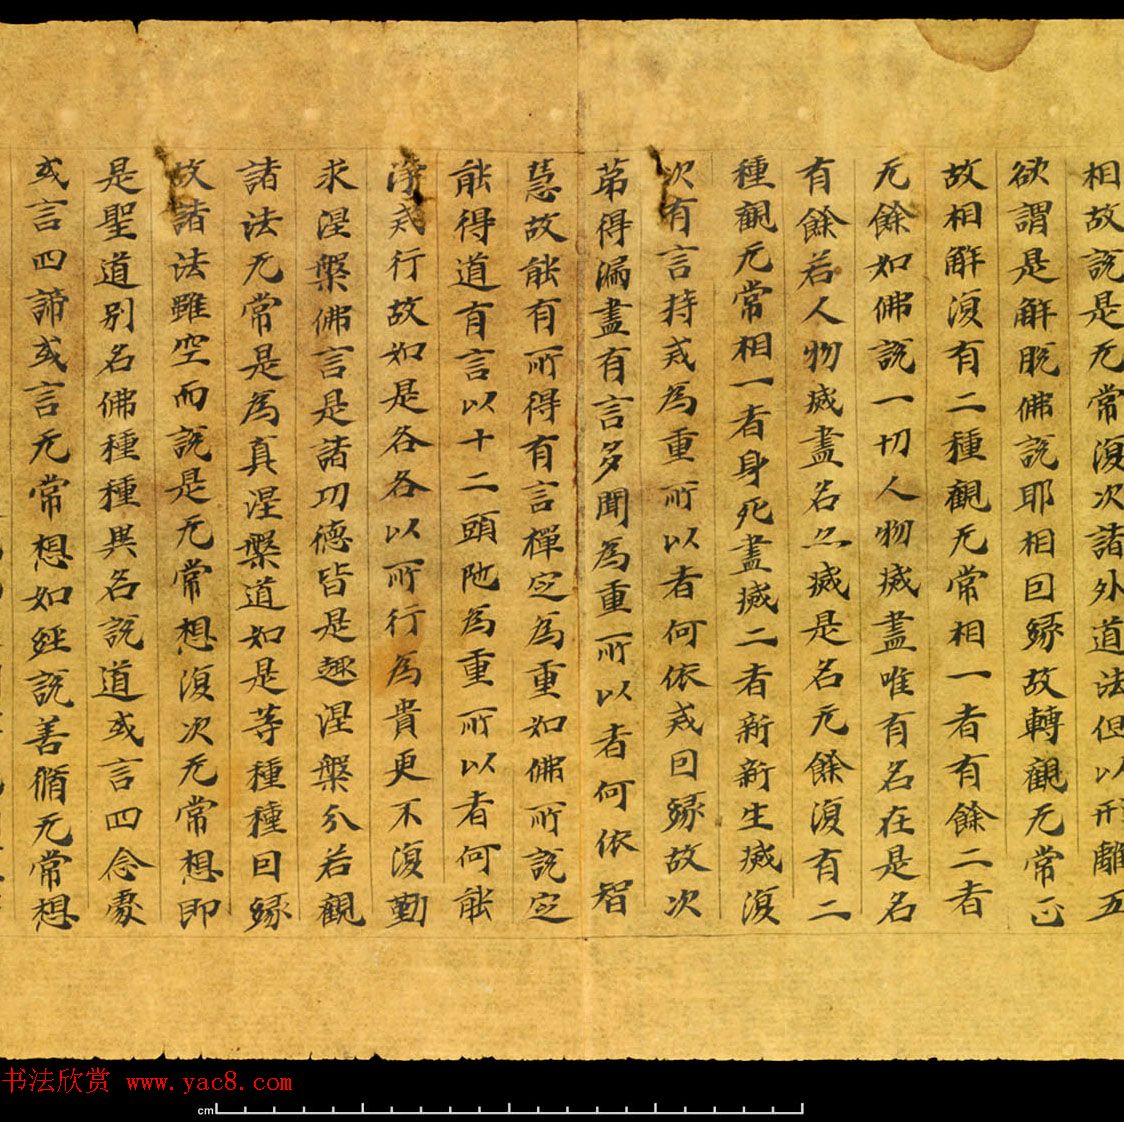 相故説是无常復次諸外道法但以形離五
欲謂是解脱佛説耶相回緣故轉觀无常正
故相解復有二種觀无常相一者有餘二者
无餘如佛説一切人物烕盡唯有名在是名
有餘若人物烕盡名亦烕是名无餘復有二
種觀无常相一者身死盡烕二者新新生烕復
次有言持戒為重所以者何依戒回緣故次
苐得漏盡有言多聞為重所以者何依智
慧故能有所得有言禪定為重如佛所説定
能得道有言以十二頭陁為重所以者何能
淨戒行故如是各各以所行為貴更不復勤
求涅槃佛言是諸功德皆是趣涅槃分若觀
諸法无常是為真涅槃道如是等種種回緣
故諸法雖空而説是无常想復次无常想即
是聖道別名佛種種異名説道或言四念處
或言四諦或言无常想如經説善脩无常想
书法欣赏 www.yac8.com
cm